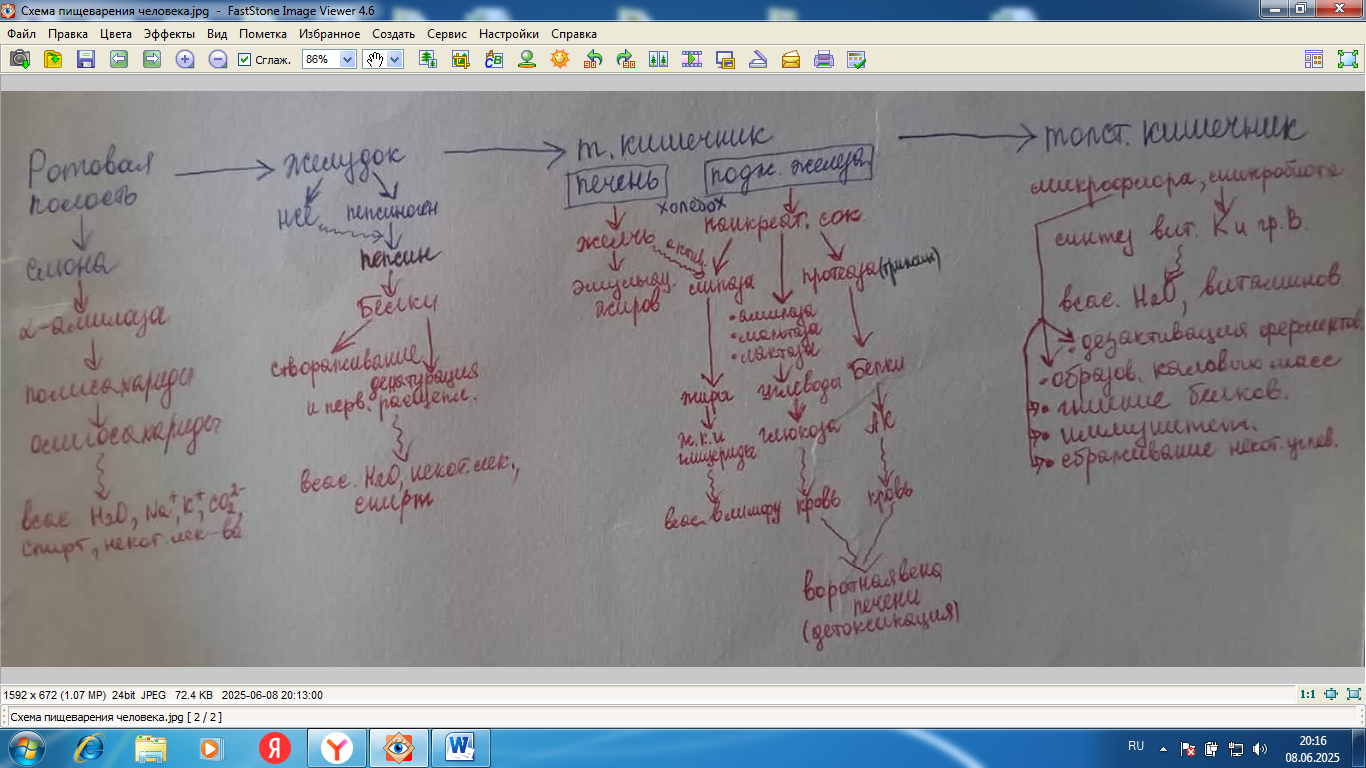 Схема пищеварения человека.jpg - FastStone Image Viewer 4.6
Файл Правка Цвета Эффекты Вид Пометка Избранное Создать Сервис Настройки Справка
Сглаж. 86%
Ротовая полость
слюна
α-амилаза
полисахариды
олигосахариды
всас. H₂O, Na⁺, K⁺, CO₂²⁻,
спирт, некот. лек-ва
желудок
HCl пепсиноген
пепсин
Белки
створаживание
денатурация
и перв. расщепл.
всас. H₂O, некот. лек.,
спирт
т. кишечник
печень
подж. железа
холедох
желчь
актив.
эмульгац.
жиров
панкреат. сок
липаза
• амилаза
• мальтаза
• лактаза
протеаза (трипсин)
жиры
углеводы
Белки
ж.к. и
глицериды
глюкоза
АК
всас. в лимфу
кровь
кровь
воротная вена
печени
(детоксикация)
толст. кишечник
микрофлора, микробиота
синтез вит. K и гр. B.
всас. H₂O, витаминов.
• дезактивация ферментов.
• образов. каловых масс
• гниение белков.
• иммунитет.
• сбраживание некот. углев.
1592 x 672 (1.07 MP) 24bit JPEG 72.4 KB 2025-06-08 20:13:00
1:1
Схема пищеварения человека.jpg [ 2 / 2 ]
RU
20:16
08.06.2025